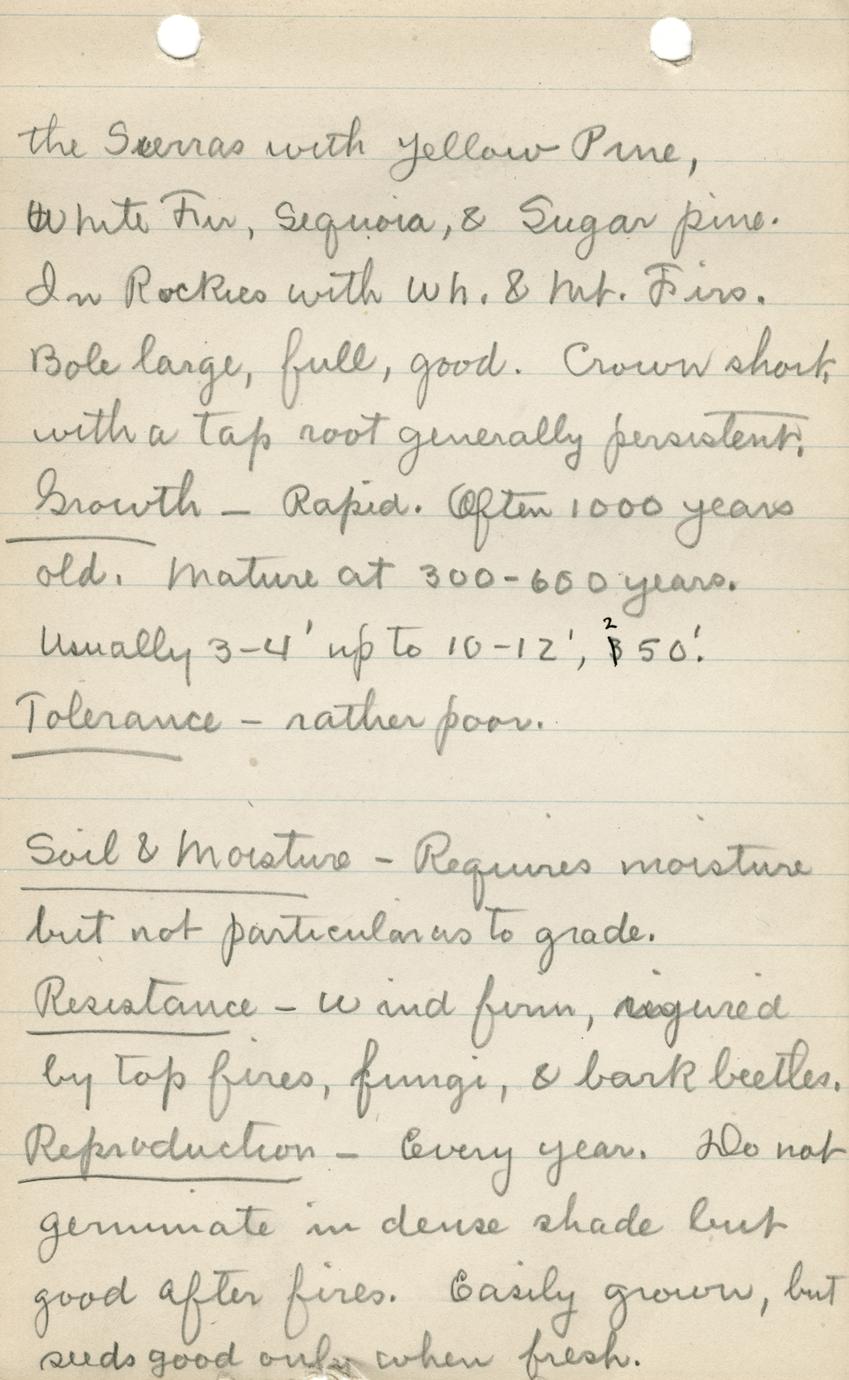 the Sierras with Yellow Pine,
White Fir, Sequoia, & Sugar pine.
In Rockies with Wh. & Mt. Firs.
Bole large, full, good. Crown short,
with a tap root generally persistent.
Growth – Rapid. Often 1000 years
old. Mature at 300-600 years.
Usually 3-4' up to 10-12', 250'.
Tolerance – rather poor.
Soil & Moisture – Requires moisture
but not particular as to grade.
Resistance – Wind firm, injured
by top fires, fungi, & bark beetles.
Reproduction – Every year. Do not
germinate in dense shade but
good after fires. Easily grown, but
seeds good only when fresh.